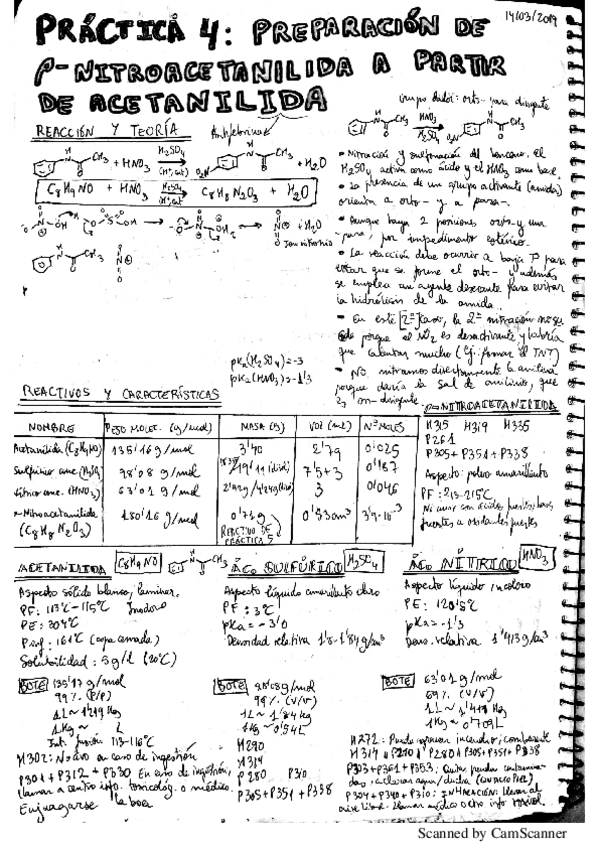 14/03/2019
PRÁCTICA 4: PREPARACIÓN DE
P-NITROACETANILIDA A PARTIR
DE ACETANILIDA
REACCIÓN Y TEORÍA
+ HNO3 H2SO4 + H2O
C8H9NO + HNO3 H2SO4 C8H8N2O3 + H2O
Ion nitronio
• Nitración y sulfonación del benceno, el
H2SO4 actúa como ácido y el HNO3 como base.
• La presencia de un grupo activante (amida)
orienta a orto- y a para-.
• Aunque haya 2 posiciones orto- y una
para, por impedimento estérico.
• La reacción debe ocurrir a baja Tª para
evitar que se forme el orto- y además
se emplea un agente desecante para evitar
la hidrólisis de la amida.
• En este caso, la 2ª nitración no se
porque el NO2 es desactivante y habría
que calentar mucho (Ej: formar el TNT)
• No nitramos directamente la anilina
porque daría la sal de anilinio, que
es m-dirigente.
pKa(H2SO4)=-3
pKa(HNO3)=-1'3
REACTIVOS Y CARACTERÍSTICAS
NOMBRE PESO MOLEC. (g/mol) MASA (g) VOL (mL) Nº MOLES
Acetanilida (C8H9NO) 135'16 g/mol 3'40 2'79 0'025
Sulfúrico conc. (H2SO4) 98'08 g/mol 7'5+3 0'187
Nítrico conc. (HNO3) 63'01 g/mol 3 0'046
p-Nitroacetanilida 180'16 g/mol 0'53cm³
(C8H8N2O3)
REACTIVO DE
PRÁCTICA 5
P-NITROACETANILIDA
H315 H319 H335
P261
P305+P351+P338
Aspecto: polvo amarillento
PF: 213-215°C
No unir con ácidos fuertes, bases
fuertes u oxidantes fuertes
ACETANILIDA C8H9NO
Aspecto sólido blanco, laminar.
PF: 113°C-115°C Inodoro
PE: 304°C
P.inf: 161°C (copa cerrada)
Solubilidad: 5 g/L (20°C)
BOTE 135'17 g/mol
99% (P/P)
1L ~ 1'219 Kg
1Kg ~ L
Int. fusión 113-116°C
H302: Nocivo en caso de ingestión
P301+P312+P330 En caso de ingestión,
llamar a centro info. toxicológ. o médico.
Enjuagarse la boca
ÁCO SULFÚRICO H2SO4
Aspecto líquido amarillento claro
PF: 3°C
pKa = -3'0
Densidad relativa 1'8-1'84 g/cm³
BOTE 98'08 g/mol
99% (V/V)
1L ~ 1'84 Kg
1Kg ~ 0'54L
H290
H314
P280 P310
P305+P351+P338
ÁCO NÍTRICO HNO3
Aspecto líquido incoloro
PE: 120'5°C
pKa = -1'3
Dens. relativa 1'413 g/cm³
BOTE 63'01 g/mol
69% (V/V)
1L ~ 1'41 Kg
1Kg ~ 0'709L
H272: Puede agravar incendio; comburente
H314 P210 P280 P305+P351+P338
P303+P361+P353: Quitar prendas contaminadas,
aclararse agua/ducha (CONTACTO PIEL)
P304+P340+P310: INHALACIÓN: llevar al
aire libre. Llamar médico o ctro info toxicol.
Scanned by CamScanner